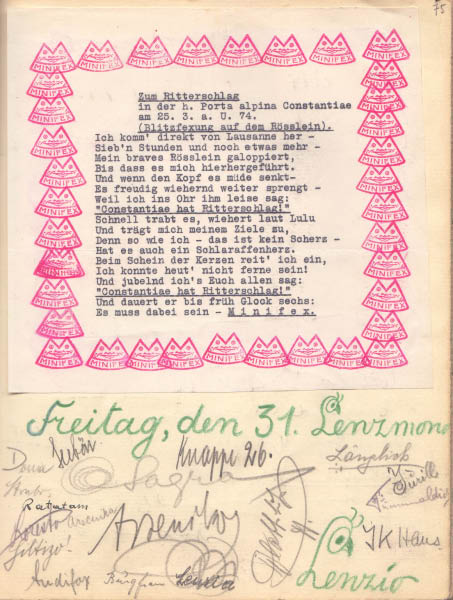 75
Zum Ritterschlag
in der h. Porta alpina Constantiae
am 25. 3. a. U. 74.
(Blitzfexung auf dem Rösslein).
Ich komm' direkt von Lausanne her -
Sieb'n Stunden und noch etwas mehr -
Mein braves Rösslein galoppiert,
Bis dass es mich hierhergeführt.
Und wenn den Kopf es müde senkt-
Es freudig wiehernd weiter sprengt -
Weil ich ins Ohr ihm leise sag:
"Constantiae hat Ritterschlag!"
Schnell trabt es, wiehert laut Lulu
Und trägt mich meinem Ziele zu,
Denn so wie ich - das ist kein Scherz -
Hat es auch ein Schlaraffenherz.
Beim Schein der Kerzen reit' ich ein,
Ich konnte heut' nicht ferne sein!
Und jubelnd ich's Euch allen sag:
"Constantiae hat Ritterschlag!"
Und dauert er bis früh Glock sechs:
Es muss dabei sein - M i n i f e x.
MINIFEX
Freitag, den 31. Lenzmond
Knappe 26.
Sagra
Ratatam
Arsenikos
JK Hans
Audifax
Lenzio